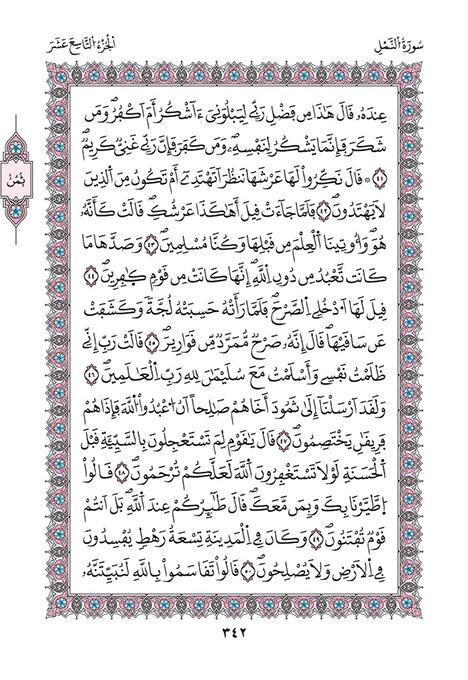 سُورَةُ النَّمْلِ
الجُزْءُ التَّاسِعَ عَشَرَ
ثُمُن
عِندَهُۥ قَالَ هَٰذَا مِن فَضْلِ رَبِّے لِيَبْلُوَنِيَ ءَآشْكُرُ أَمَ اَكْفُرُۖ وَمَن
شَكَرَ فَإِنَّمَا يَشْكُرُ لِنَفْسِهِۦۖ وَمَن كَفَرَ فَإِنَّ رَبِّے غَنِيّٞ كَرِيمٞۖ
٤١ ۞ قَالَ نَكِّرُواْ لَهَا عَرْشَهَا نَنظُرَ اَتَهْتَدِےٓ أَمْ تَكُونُ مِنَ اَلذِينَ
لَا يَهْتَدُونَۖ ٤٢ فَلَمَّا جَآءَتْ قِيلَ أَهَٰكَذَا عَرْشُكِۖ قَالَتْ كَأَنَّهُۥ
هُوَۖ وَأُوتِينَا اَلْعِلْمَ مِن قَبْلِهَا وَكُنَّا مُسْلِمِينَۖ ٤٣ وَصَدَّهَا مَا
كَانَت تَّعْبُدُ مِن دُونِ اِللَّهِۖ إِنَّهَا كَانَتْ مِن قَوْمٖ كٰ۪فِرِينَۖ ٤٤
قِيلَ لَهَا اَ۟دْخُلِے اِلصَّرْحَۖ فَلَمَّا رَأَتْهُ حَسِبَتْهُ لُجَّةٗ وَكَشَفَتْ
عَن سَاقَيْهَاۖ قَالَ إِنَّهُۥ صَرْحٞ مُّمَرَّدٞ مِّن قَوَارِيرَۖ ٤٥ قَالَتْ رَبِّ إِنِّے
ظَلَمْتُ نَفْسِے وَأَسْلَمْتُ مَعَ سُلَيْمَٰنَ لِلهِ رَبِّ اِلْعَٰلَمِينَۖ ٤٦
وَلَقَدَ اَرْسَلْنَآ إِلَىٰ ثَمُودَ أَخَاهُمْ صَٰلِحاً اَنُ اُ۟عْبُدُواْ اُللَّهَ فَإِذَا هُمْ
فَرِيقَٰنِ يَخْتَصِمُونَۖ ٤٧ قَالَ يَٰقَوْمِ لِمَ تَسْتَعْجِلُونَ بِالسَّيِّئَةِ قَبْلَ
اَلْحَسَنَةِ لَوْلَا تَسْتَغْفِرُونَ اَللَّهَ لَعَلَّكُمْ تُرْحَمُونَۖ ٤٨ قَالُواْ
اُ۪طَّيَّرْنَا بِكَ وَبِمَن مَّعَكَۖ قَالَ طَٰٓئِرُكُمْ عِندَ اَللَّهِۖ بَلَ اَنتُمْ
قَوْمٞ تُفْتَنُونَۖ ٤٩ وَكَانَ فِے اِلْمَدِينَةِ تِسْعَةُ رَهْطٖ يُفْسِدُونَ
فِے اِلَارْضِ وَلَا يُصْلِحُونَۖ ٥٠ قَالُواْ تَقَاسَمُواْ بِاللَّهِ لَنُبَيِّتَنَّهُۥ
٣٤٢